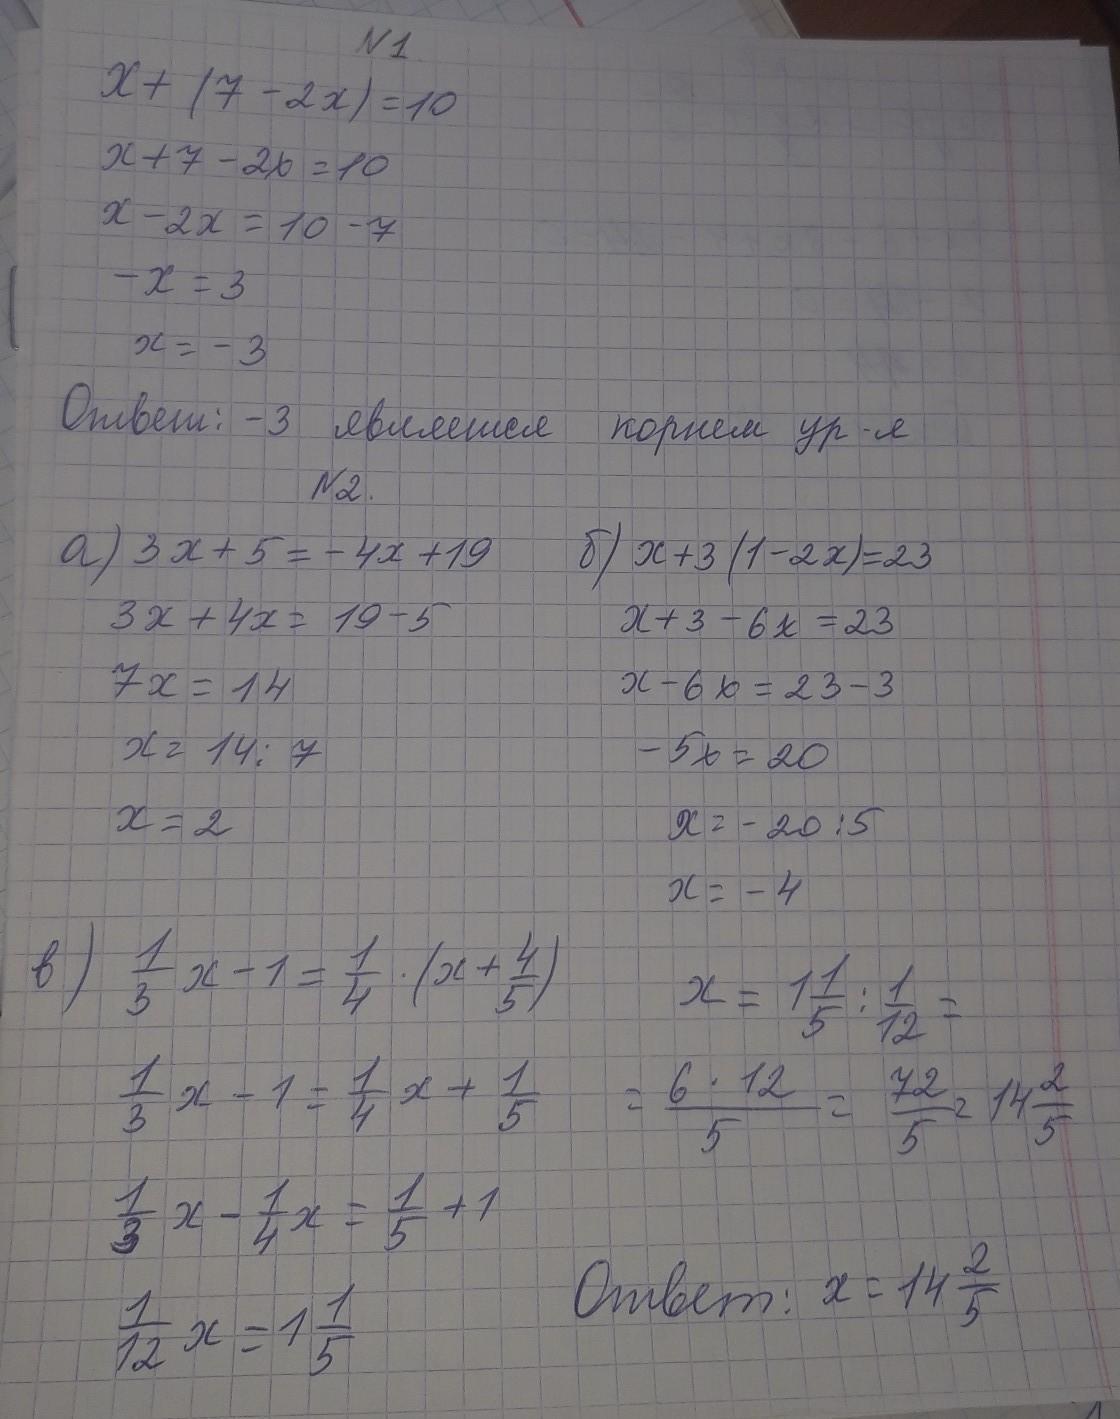 N1.
x + (7 - 2x) = 10
x + 7 - 2x = 10
x - 2x = 10 - 7
-x = 3
x = -3
Ответ: -3 является корнем ур-я
N2.
а) 3x + 5 = -4x + 19
3x + 4x = 19 - 5
7x = 14
x = 14 : 7
x = 2
б) x + 3 (1 - 2x) = 23
x + 3 - 6x = 23
x - 6x = 23 - 3
-5x = 20
x = -20 : 5
x = -4
в) 1/3 x - 1 = 1/4 · (x + 4/5)
1/3 x - 1 = 1/4 x + 1/5
1/3 x - 1/4 x = 1/5 + 1
1/12 x = 1 1/5
x = 1 1/5 : 1/12 =
= 6 · 12/5 = 72/5 = 14 2/5
Ответ: x = 14 2/5